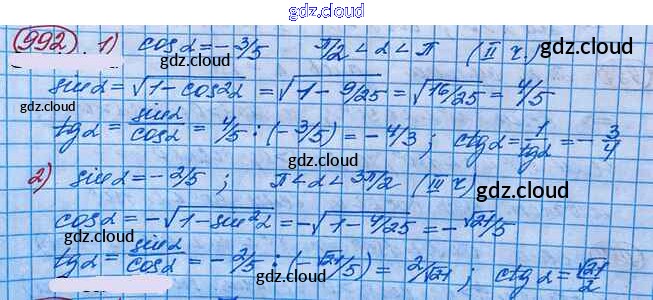 gdz.cloud
992. 1) cos α = -3/5   π/2 < α < π   (II ч.)
gdz.cloud gdz.cloud
sin α = √1 - cos²α = √1 - 9/25 = √16/25 = 4/5
gdz.cloud
tg α = sin α/cos α = 4/5 : (-3/5) = -4/3 ; ctg α = 1/tg α = -3/4
gdz.cloud
2) sin α = -2/5 ;   π < α < 3π/2 (III ч)
gdz.cloud gdz.cloud
cos α = -√1 - sin²α = -√1 - 4/25 = -√21/5
gdz.cloud
tg α = sin α/cos α = -2/5 : (-√21/5) = 2/√21 ; ctg α = √21/2
gdz.cloud
gdz.cloud